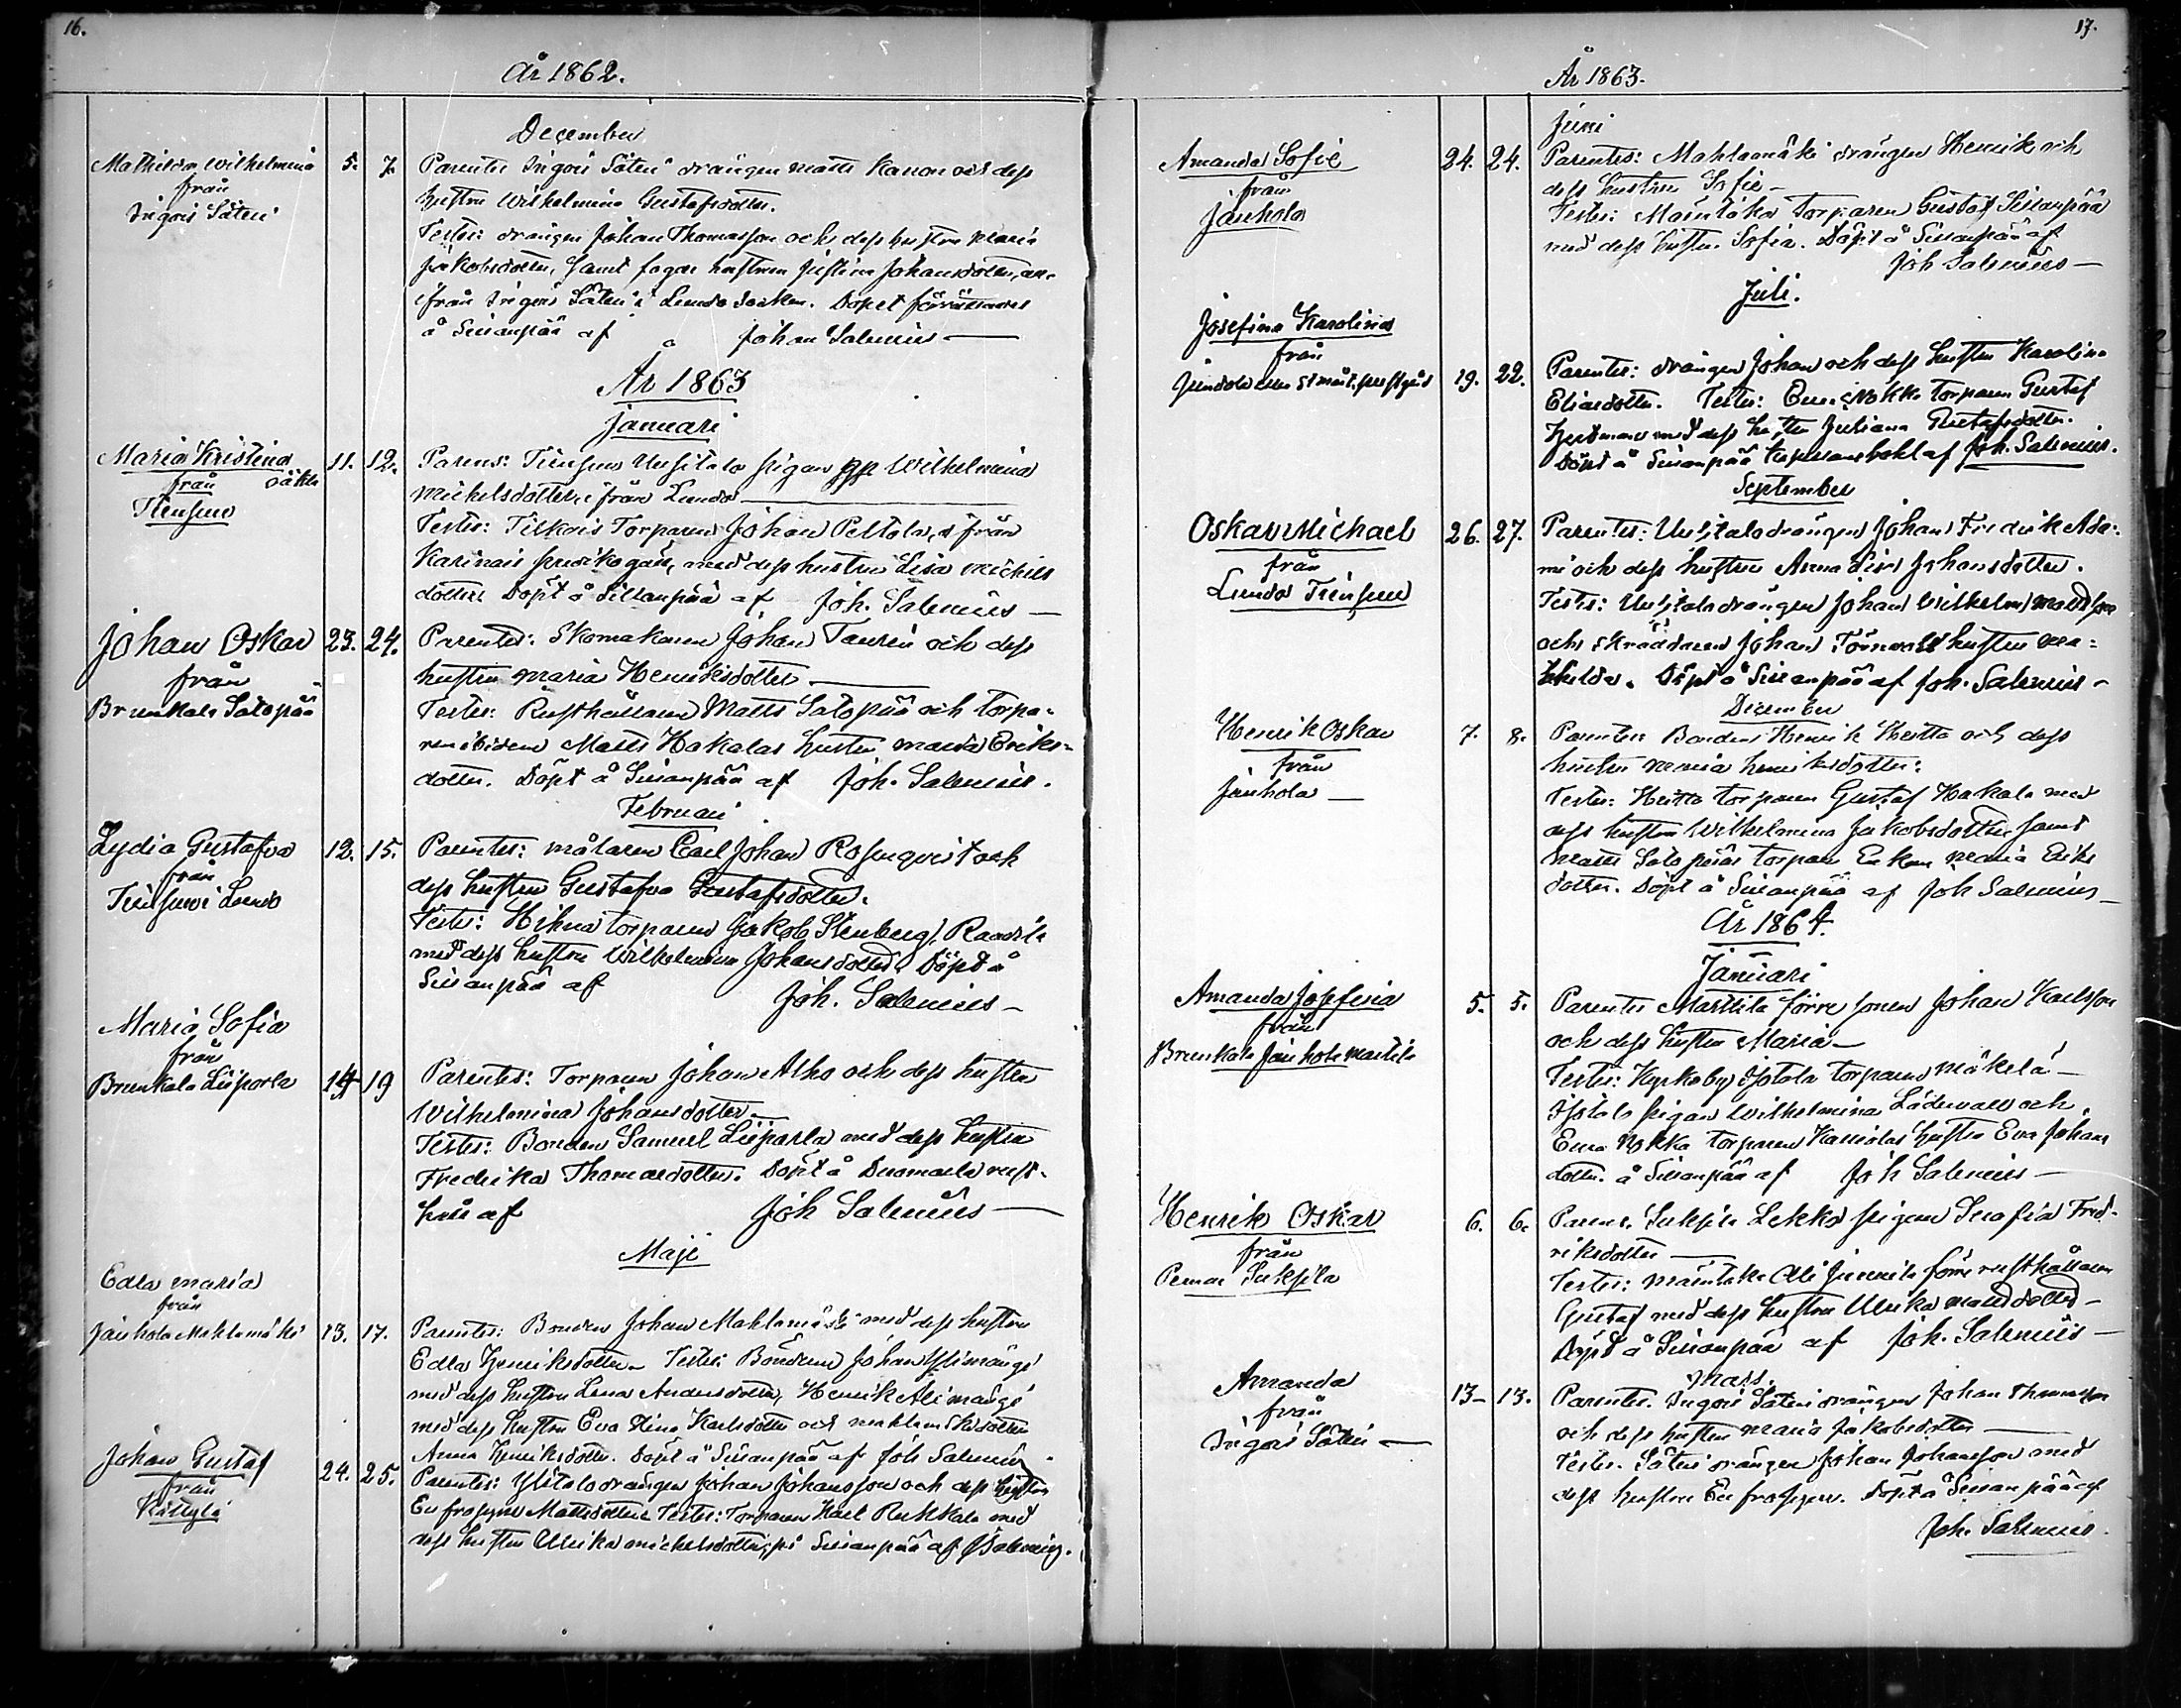 16.
År 1862.
December
Mathilda Wilhelmina 5. 7.
från
Ingois Säteri
Parentes Ingois Säteri drängen Matts Kanon och dess
hustru Wilhelmina Gustafsdotter.
Testes: drängen Johan Thomasson och dess hustru Maria
Jakobsdotter, samt hustrun Justina Johansdotter,
från Ingois Säteri i Lundo Socken. Döpet förrättades
å Sillanpää af Johan Salenius
År 1863
Januari
Maria Kristina 11. 12.
från oäkta
Tiensuu
Parens: Tiensuu Uusitalo pigan Wilhelmina
Mickelsdotter, från Lundo
Testes: Torparen Johan Peltola, från
Karinais, med dess hustru Lisa Michels
dotter. Döpt å Sillanpää af Joh. Salenius
Johan Oskar 23. 24.
från
Brunkala Satopää
Parentes: Skomakaren Johan Taurén och dess
hustru Maria Henriksdotter
Testes: Rusthållaren Matts Satopää och torpa-
ren ibidem Matts Hakalas hustru Maria Eriks-
dotter. Döpt å Sillanpää af Joh. Salenius.
Februari
Lydia Gustafva 12. 15.
från
Tiensuu i Lundo
Parentes: målaren Carl Johan Rosenqvist och
dess hustru Gustafva Gustafsdotter.
Testes: torparen Jakob Stenberg,
med dess hustru Wilhelmina Johansdotter. Döpt å
Sillanpää af
Joh. Salenius
Maria Sofia
från
Brunkala Liiparla 14 19
Parentes: Torparen Johan Alho och dess hustru
Wilhelmina Johansdotter
Testes: Bonden Samuel Liiparla med dess hustru
Fredrika Thomasdotter. Döpt å
af Joh Salenius
Maji
Edla Maria
från
Jänhola Mahlamäki 13. 17.
Parentes: Bonden Johan Mahlamäki med dess hustru
Edla Henriksdotter. Testes: Bonden Johan
med dess hustru Lena Andersdotter, Henrik
med dess hustru Eva Stina Karlsdotter och
Anna Henriksdotter. Döpt å Sillanpää af Joh Salenius
Johan Gustaf 24. 25.
från
Parentes: Ylitalo drängen Johan Johansson och dess hustru
Eufrosyne Mattsdotter. Testes: Torparen Karl Rukkala med
dess hustru Ulrika Michelsdotter, på Sillanpää af J Salenius.
17.
År 1863.
Juni
Amanda Sofie 24. 24.
från
Jänhola
Parentes: Mahlamäki drängen Henrik och
dess hustru Sofie
Testes: Torparen Gustaf Sillanpää
med dess hustru Sofia. Döpt å Sillanpää af
Joh Salenius
Juli.
Josefina Karolina
från
19. 22.
Parentes: drängen Johan och dess hustru Karolina
Eliasdotter. Testes: torparen Gustaf
med dess hustru Juliana Gustafsdotter.
Döpt å Sillanpää af Joh. Salenius.
September
Oskar Michael 26. 27.
från
Lundo Tiensuu
Parentes: Uusitalo drängen Johan Fredrik Ada-
mi och dess hustru Anna Lisa Johansdotter.
Testes: Uusitalo drängen Johan Wilhelm Mattsson
och skräddaren Johan Törnvall hustru Ma-
thilda. Döpt å Sillanpää af Joh. Salenius
December
Henrik Oskar 7. 8.
från
Jänhola
Parentes Bonden Henrik Heitto och dess
hustru Maria Henriksdotter:
Testes: Heitto torparen Gustaf Hakala med
dess hustru Wilhelmina Jakobsdotter samt
Matts Satopää torpare Enkan Maria Eriks
dotter. Döpt å Sillanpää af Joh Salenius
År 1864.
Januari
Amanda Josefina 5. 5.
från
Brunkala Jänhola Marttila
Parentes Marttila förre sonen Johan Karlsson
och dess hustru Maria
Testes: Kyrkoby Isotalo torparen Mäkelä
Isotalo pigan Wilhelmina och
torparen hustru Eva Johans
dotter. å Sillanpää af Joh Salenius
Henrik Oskar 6. 6.
från
Pemar Sukula
Parens. Lekko pigan Serafia Fred-
riksdotter
Testes: förre rusthållaren
Gustaf med dess hustru Ulrika Mattsdotter
Döpt å Sillanpää af Joh. Salenius
Mars.
Amanda 13 13.
från
Ingois Säteri
Parentes. Ingois Säteri drängen Johan Thomasson
och dess hustru Maria Jakobsdotter
Testes. Säteri drängen Johan Johansson med
dess hustru Eufrosyne. Döpt å Sillanpää af
Joh. Salenius.